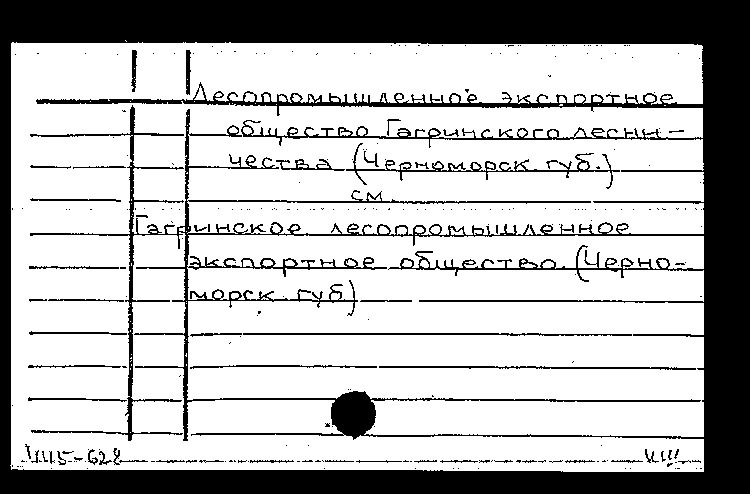 Лесопромышленное экспортное
общество Гагринского лесни-
чества (Черноморск. губ.)
см.
Гагринское лесопромышленное
экспортное общество. (Черно-
морск. губ)